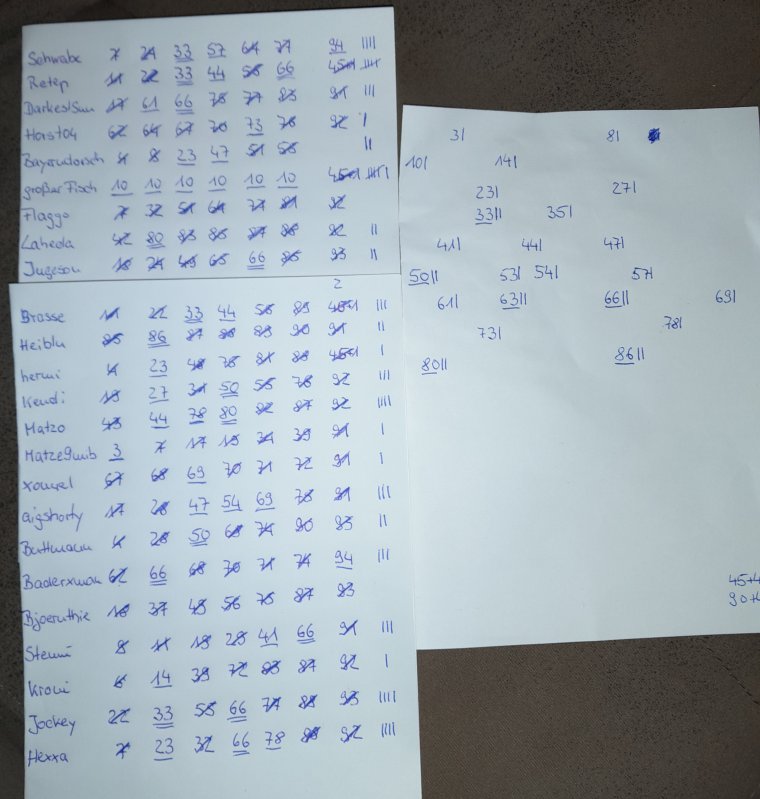 Schwabe 7 24 33 57 64 77 94 ||||
Retep 11 22 33 44 55 66 45+1
DarkestSun 17 61 66 75 77 83 91 |||
Horst04 62 64 67 70 73 76 92 |
Bayerndorsch 4 8 23 47 51 58 ||
großer Fisch 10 10 10 10 10 10 45+1
Flaggo 7 32 51 64 77 81 82
Laheda 42 80 83 85 87 88 92 ||
Jugeson 18 24 49 65 66 85 93 ||
2
Brasse 11 22 33 44 55 89 45+1 |||
Heiblu 85 86 87 88 89 90 91 ||
hermi 4 23 48 75 81 88 45+1 |
Kendi 19 27 34 50 56 76 92 |||
Matzo 43 44 78 80 82 87 92 ||||
Matze9mb 3 7 17 19 34 39 91 |
67 68 69 70 71 72 91 |
aigshorty 17 28 47 54 69 78 91 |||
Buttmann 4 28 50 68 74 90 83 ||
62 66 68 70 71 74 94 |||
Bjoernthie 16 37 48 56 75 87 83
8 11 19 28 41 66 91 |||
Kroni 6 14 39 72 83 87 92 |
Jockey 22 33 55 66 77 88 93 ||||
Hexxa 7 23 32 66 78 88 92 ||||
3| 8|
10| 14|
23| 27|
33|| 35|
41| 44| 47|
50|| 53| 54| 57|
61| 63|| 66|| 69|
73| 78|
80|| 86||
45+4